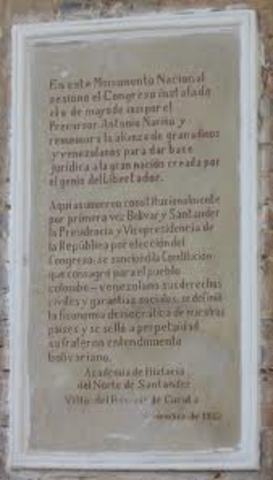 En este Monumento Nacional
sesionó el Congreso instalado
el 6 de mayo de 1821 por el
Precursor Antonio Nariño y
rememora la alianza de granadinos
y venezolanos para dar base
jurídica a la gran nación creada por
el genio del Libertador.
Aquí asumieron constitucionalmente
por primera vez Bolívar y Santander
la Presidencia y Vicepresidencia de
la República por elección del
Congreso; se sancionó la Constitución
que consagró para el pueblo
colombo-venezolano sus derechos
civiles y garantías sociales, se definió
la fisonomía democrática de nuestros
países y se selló a perpetuidad
su fraterno entendimiento
bolivariano.
Academia de Historia
del Norte de Santander
Villa del Rosario de Cúcuta
de